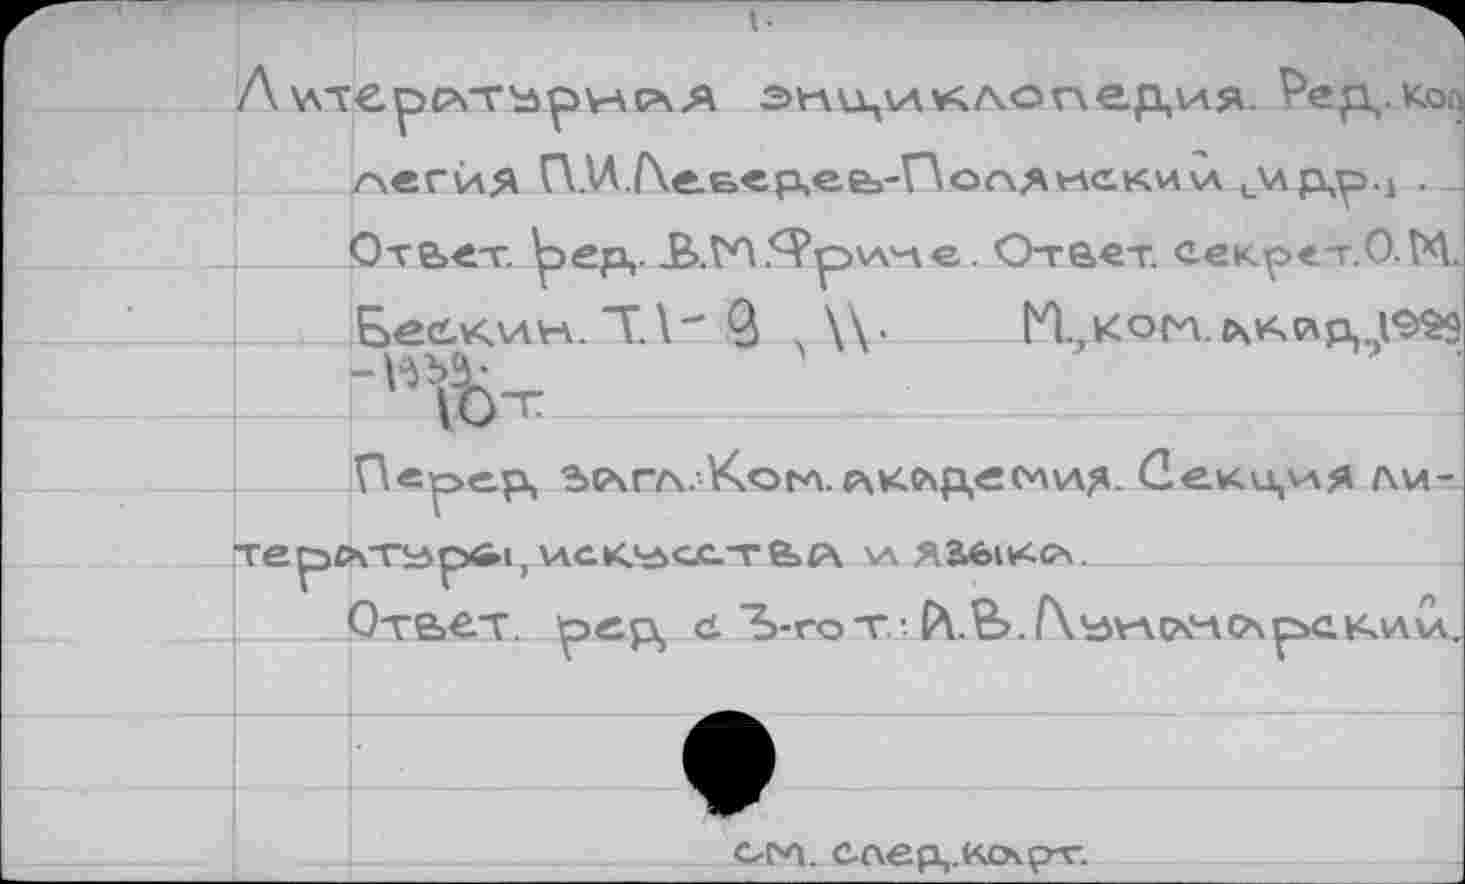 1.
Литературная энциклопедия. Ред. кол
легия П.И.Лебедев-Полянский [и др.] .
Ответ. ред. В.М.Фриче. Ответ. секрет.О.М.
Бескин. Т.1- 9 , 11. М., ком. акад., 1929
-1939.
10т.
Перед загл.: Ком. академия. Секция ли-
тературы, искусства и языка.
Ответ. ред с 3-го т.: А.В.Луначарский.
см. след.карт.